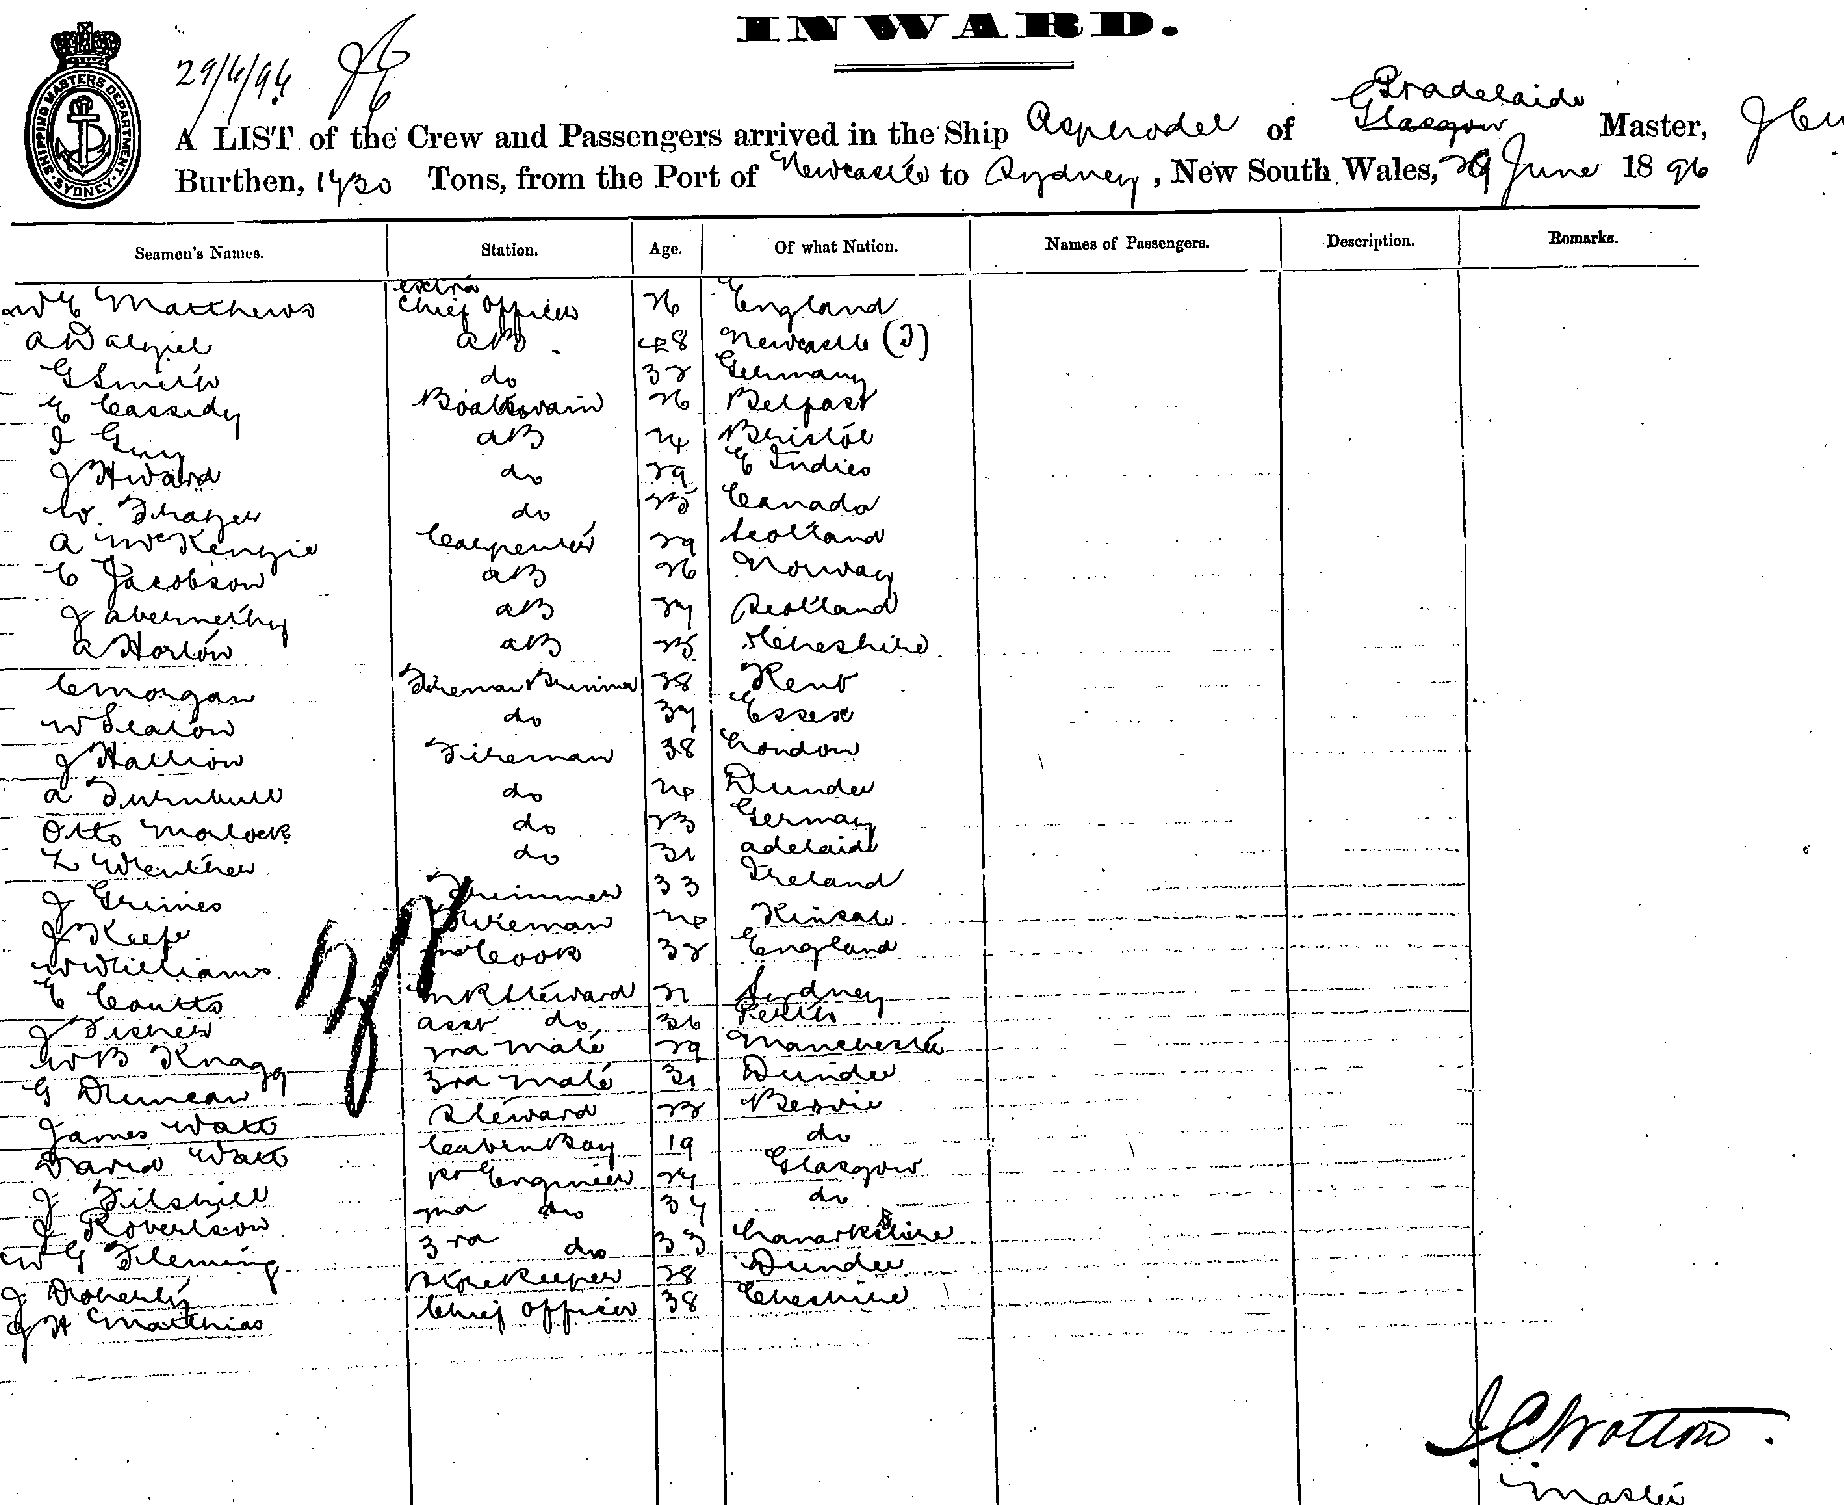 INWARD.
SHIPPING MASTERS DEPARTMENT SYDNEY
29/6/96
A LIST of the Crew and Passengers arrived in the Ship Asphodel of Glasgow Master,
Burthen, Tons, from the Port of Newcastle to Sydney, New South Wales, 29 June 1896
Seamen's Names. Station. Age. Of what Nation. Names of Passengers. Description. Remarks.
W E Matthews extra Chief Officer 26 England
A Dalziel AB 48 Newcastle (T)
G Smith do 32 Germany
E Cassidy Boatswain 26 Belfast
J Guy AB 24 Bristol
J Howard do 29 E Indies
W. Frazer do 25 Canada
A McKenzie Carpenter 29 Scotland
C Jacobson AB 26 Norway
J Abernethy AB 27 Scotland
A Horton AB 25 Cheshire
C Morgan Fireman Trimmer 28 Kent
W Seaton do 37 Essex
J Hallion Fireman 38 London
A Turnbull do 24 Dundee
Otto Morlock do 23 Germany
do 31 Adelaide
J Grimes Trimmer 33 Ireland
J Keefe Fireman 24 Kinsale
W Williams Cook 32 England
E Coutts Steward 21 Sydney
J Fisher asst do 36 Perth
W B Knagg 2nd Mate 29 Manchester
G Duncan 3rd Mate 31 Dundee
James Watt Steward 23 Bervie
David Watt Cabin Boy 19 do
J Filshill Engineer 27 Glasgow
J Robertson 2nd do 37 do
W G Fleming 3rd do 33 Lanarkshire
J Doherty Storekeeper 28 Dundee
J H Matthias Chief Officer 38 Cheshire
J C Wotton.
Master